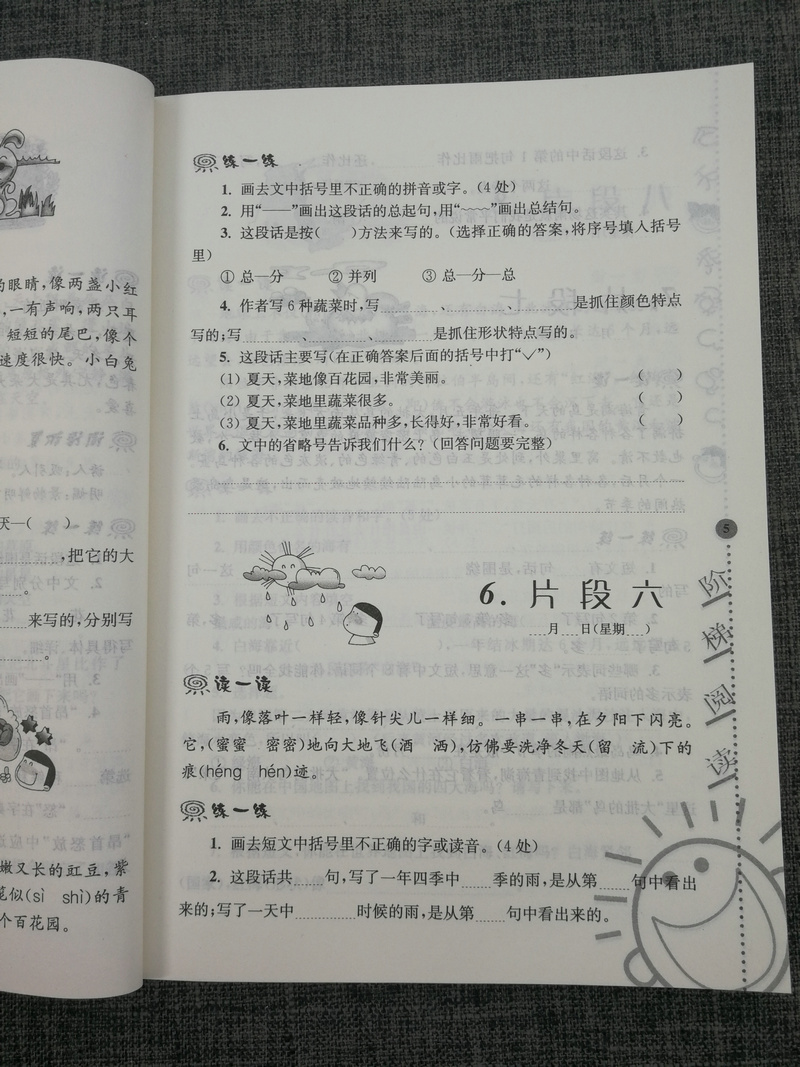 的眼睛，像两盏小红
，一有声响，两只耳
短短的尾巴，像个
速度很快。小白兔
天—(    )
，把它的大
。
来写的，分别写
。
嫩又长的豇豆，紫
笔似(sì shì)的青
个百花园。
练一练
1. 画去文中括号里不正确的拼音或字。(4 处)
2. 用“——”画出这段话的总起句，用“﹏﹏”画出总结句。
3. 这段话是按(    )方法来写的。(选择正确的答案，将序号填入括号
里)
① 总—分 ② 并列 ③ 总—分—总
4. 作者写 6 种蔬菜时，写      、      、      是抓住颜色特点
写的；写      、      、      是抓住形状特点写的。
5. 这段话主要写(在正确答案后面的括号中打“✓”)
(1) 夏天，菜地像百花园，非常美丽。 (    )
(2) 夏天，菜地里蔬菜很多。 (    )
(3) 夏天，菜地里蔬菜品种多，长得好，非常好看。 (    )
6. 文中的省略号告诉我们什么？(回答问题要完整)
5
6. 片段六
月    日(星期    )
阶梯阅读
读一读
雨，像落叶一样轻，像针尖儿一样细。一串一串，在夕阳下闪亮。
它，(蜜蜜 密密)地向大地飞(酒 洒)，仿佛要洗净冬天(留 流)下的
痕(héng hén)迹。
练一练
1. 画去短文中括号里不正确的字或读音。(4 处)
2. 这段话共      句，写了一年四季中      季的雨，是从第      句中看出
来的；写了一天中      时候的雨，是从第      句中看出来的。